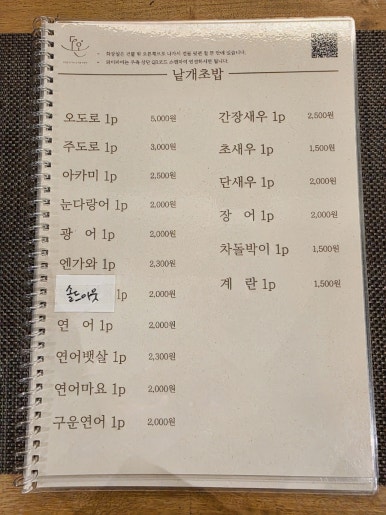 낱개초밥
오도로 1p 5,000원
주도로 1p 3,000원
아카미 1p 2,500원
눈다랑어 1p 2,000원
광 어 1p 2,000원
엔가와 1p 2,300원
솔드아웃 1p 2,000원
연 어 1p 2,000원
연어뱃살 1p 2,300원
연어마요 1p 2,000원
구운연어 1p 2,000원
간장새우 1p 2,500원
초새우 1p 1,500원
단새우 1p 2,000원
장 어 1p 2,000원
차돌박이 1p 1,500원
계 란 1p 1,500원